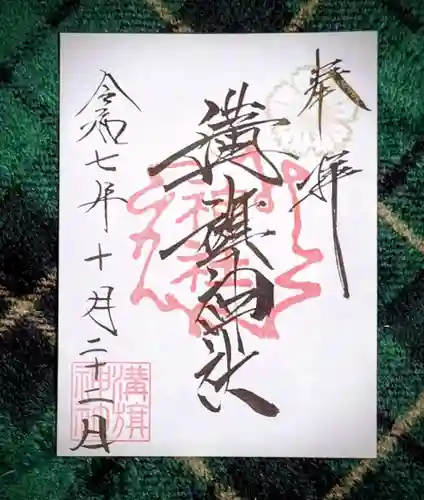 奉拝
溝旗神社
令和七年十月二十二日
溝旗
神社